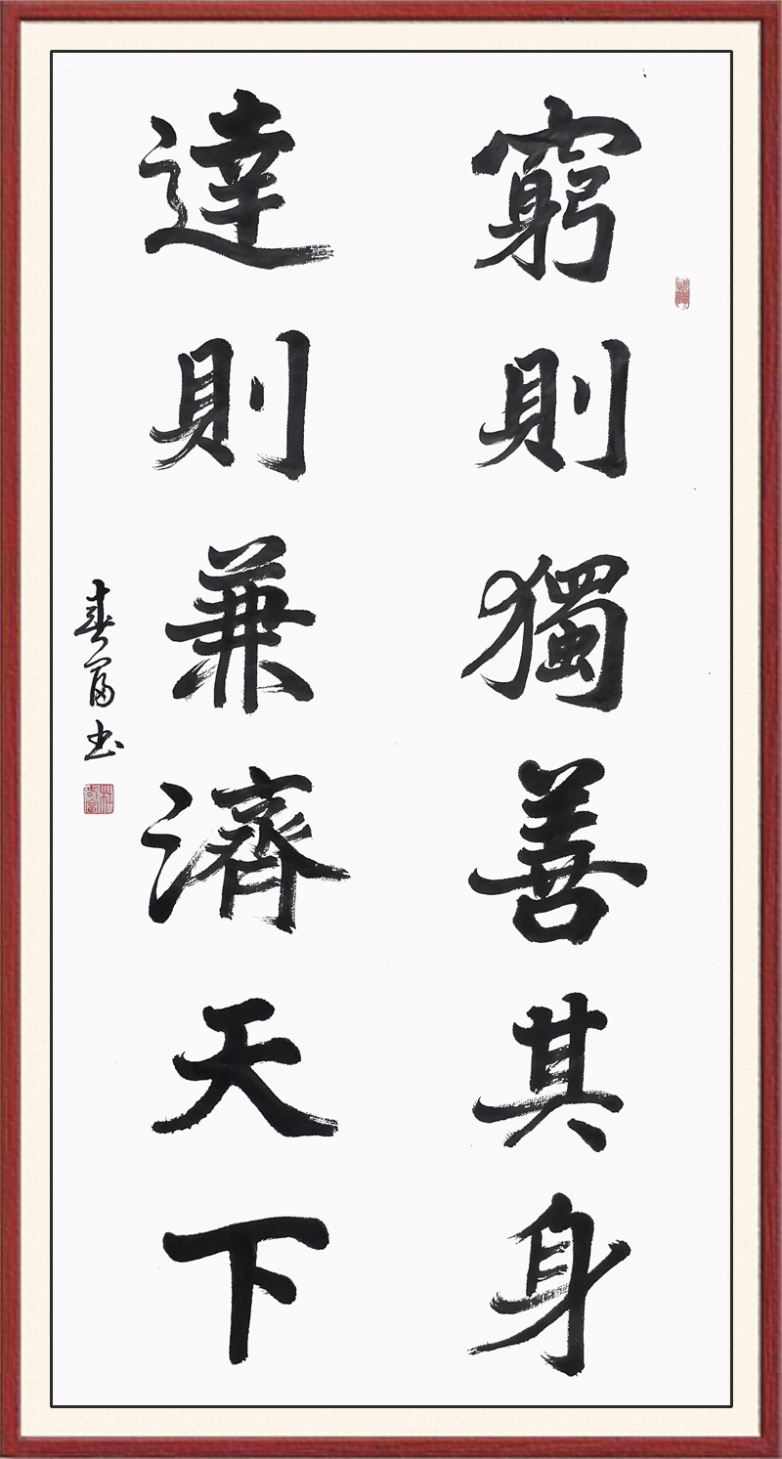 窮則獨善其身
達則兼濟天下
春富书